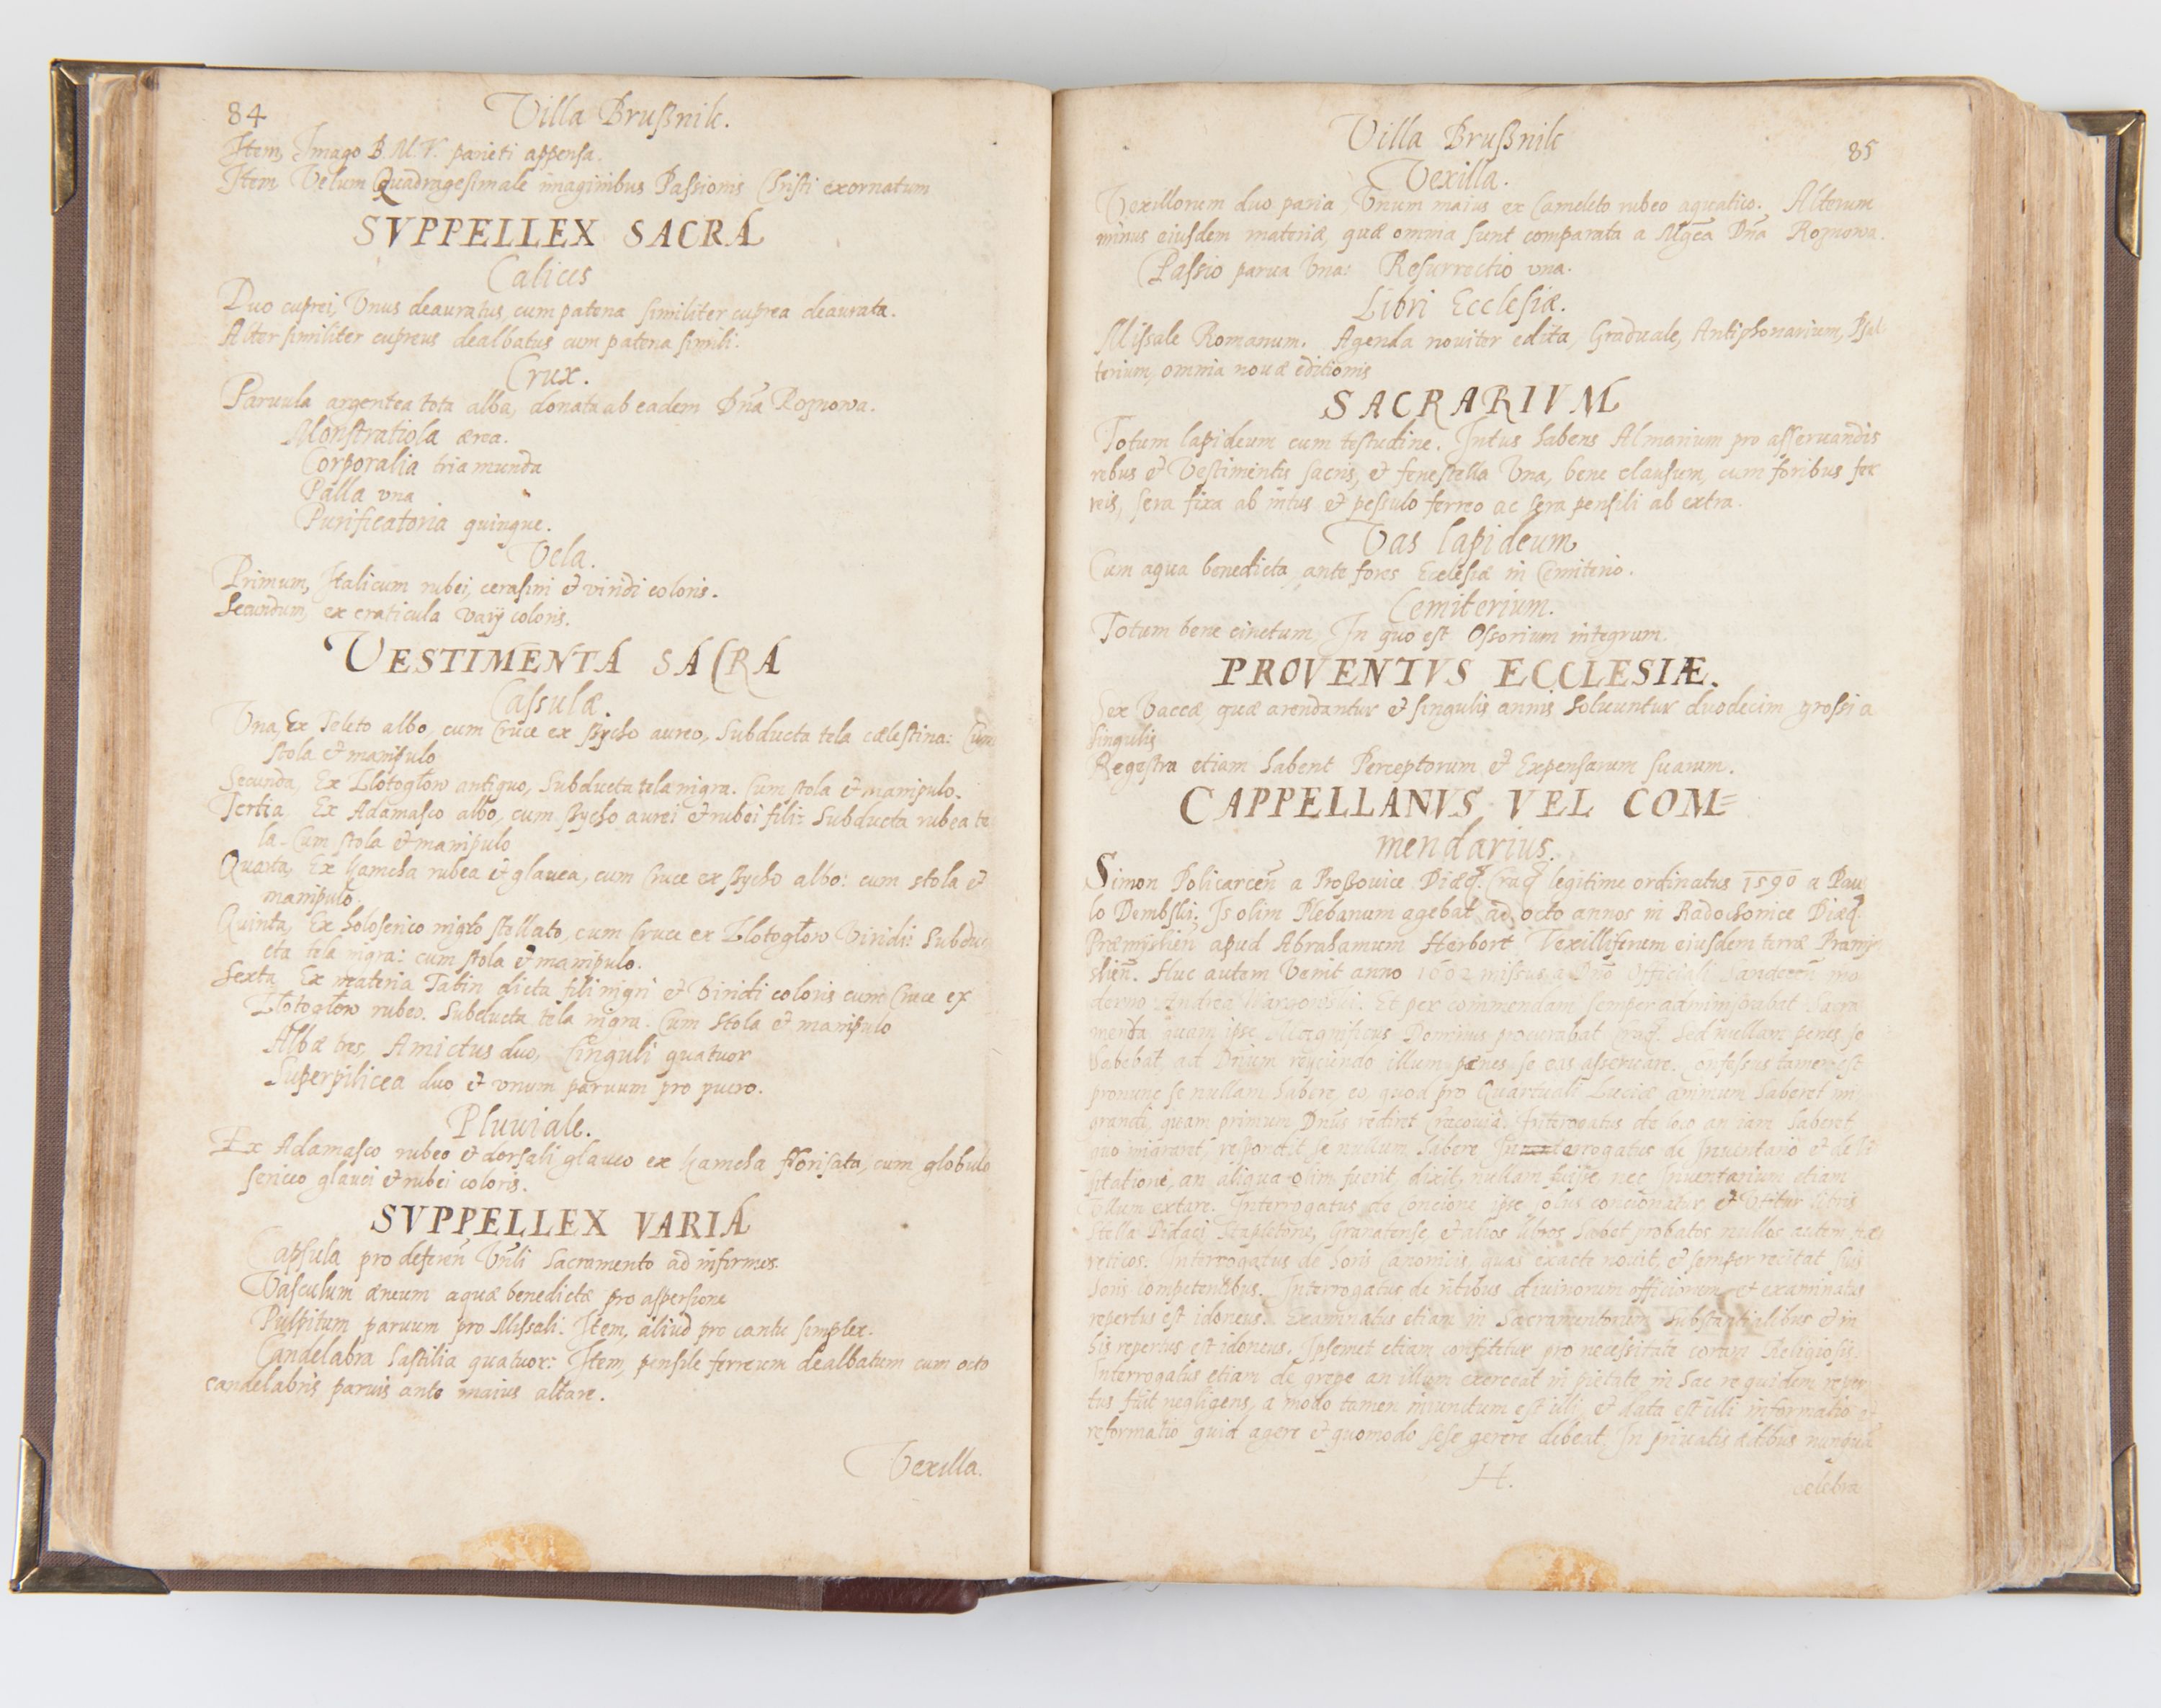 84
Villa Brußnik.
Item, Imago B. M. V. parieti appensa.
Item Velum Quadragesimale imaginibus Passionis Christi exornatum
SVPPELLEX SACRA
Calices
Duo cuprei, Vnus deauratus, cum patena similiter cuprea deaurata.
Alter similiter cupreus dealbatus cum patena simili.
Crux.
Paruula argentea tota alba, donata ab eadem Dña Rożnowa.
Monstratiola ærea.
Corporalia tria munda
Palla vna
Purificatoria quinque.
Vela.
Primum, Italicum rubei, cerasini et viridi coloris.
Secundum, ex craticula varij coloris.
VESTIMENTA SACRA
Casulæ.
Vna, Ex Teleto albo, cum Cruce ex Psycho aureo, Subducta tela cælestina: Cum
stola et manipulo
Secunda, Ex Zlotogłow antiquo, Subducta tela nigra. Cum stola et manipulo.
Tertia Ex Adamasco albo, cum Psycho aurei et rubei fili: Subducta rubea te
la. Cum stola et manipulo
Quarta, Ex Kamcha rubea et glauca, cum Cruce ex Psycho albo: cum stola et
manipulo.
Quinta, Ex holoserico nigro stellato, cum Cruce ex Zlotogłow Viridi: Subdu
cta tela nigra: cum stola et manipulo.
Sexta Ex materia Tabin dicta fili nigri et Viridi coloris cum Cruce ex
Zlotogłow rubeo. Subducta tela nigra. Cum stola et manipulo
Albæ tres, Amictus duo, Cinguli quatuor
Superpilicea duo et vnum paruum pro puero.
Pluuiale.
Ex Adamasco rubeo et dorsali glauco ex Kamcha florisata, cum globulo
sericeo glauci et rubei coloris.
SVPPELLEX VARIA
Capsula pro deferen̄ Vn̄li Sacramento ad infirmos.
Vasculum æneum aquæ benedictæ pro aspersione
Pulpitum paruum pro Missali: Item, aliud pro cantu simplex.
Candelabra hastilia quatuor: Item, pensile ferreum dealbatum cum octo
candelabris paruis ante maius altare.
Vexilla.
Villa Brußnik
85
Vexilla.
Vexillorum duo paria, Vnum maius ex Cameleto rubeo aquatico. Alterum
minus eiusdem materiæ, quæ omnia sunt comparata a Mgca Dña Rożnowa.
Passio parua Vna: Resurrectio vna.
Libri Ecclesiæ.
Missale Romanum. Agenda nouiter edita, Graduale, Antiphonarium, Psal
terium, omnia nouæ editionis
SACRARIVM
Totum lapideum cum testudine. Intus habens Almarium pro asseruandis
rebus et Vestimentis sacris, et fenestella Vna, bene clausum, cum foribus fer
reis, sera fixa ab intus et pessulo ferreo ac sera pensili ab extra.
Vas lapideum
Cum aqua benedicta, ante fores Ecclesiæ in Cemiterio.
Cemiterium.
Totum bene cinctum, In quo est Ossorium integrum.
PROVENTVS ECCLESIÆ.
Sex Vaccæ, quæ arendantur et singulis annis soluuntur duodecim grossi a
singulis
Regestra etiam habent Perceptorum et Expensarum suarum.
CAPPELLANVS VEL COM=
mendarius.
Simon Policarcen̄ a Proßouice Diæc. Crac. legitime ordinatus 1590 a Pau
lo Dembski. Is olim Plebanum agebat ad octo annos in Radochonice Diæc.
Præmyslien̄ apud Abrahamum Herbort Vexilliferum eiusdem terræ Præmy
slien̄. Huc autem Venit anno 1602 missus a Dn̄o Officiali Sandecen̄ mo
derno Andrea Et per commendam semper administrabat Sacra
menta quam ipse Magnificus Dominus procurabat Crac. Sed nullam penes se
habebat, ad Dn̄um reijciendo illum penes se eas asseruare. Confessus tamen est
pronunc se nullam habere, eo quod pro Quartuali Luciæ animum haberet mi
grandi, quam primum Dn̄us rediret Cracouia. Interrogatus de loco an iam haberet
quo migraret, respondit se nullum habere. Interrogatus de Inuentario et de Vi
sitatione, an aliqua olim fuerit, dixit, nullam fuisse, nec Inuentarium etiam
Vllum extare. Interrogatus de Concione ipse solus concionatur, et Vtitur libris
Stella Didaci, Stapletone, Granatense, et alios libros habet probatos nullos autem hæ
reticos. Interrogatus de horis Canonicis, quas exacte nouit, et semper recitat suis
horis competentibus. Interrogatus de ritibus diuinorum officiorum, et examinatus
repertus est idoneus. Examinatus etiam in Sacramentorum substantialibus et in
his repertus est idoneus. Ipsemet etiam confitetur pro necessitate coram Religiosis.
Interrogatus etiam de grege an illum exerceat in pietate, in hac re quidem reper
tus fuit negligens, a modo tamen iniunctum est illi, et data est illi informatio et
reformatio quid agere et quomodo sese gerere debeat. In priuatis ædibus nunqua
H.
celebra